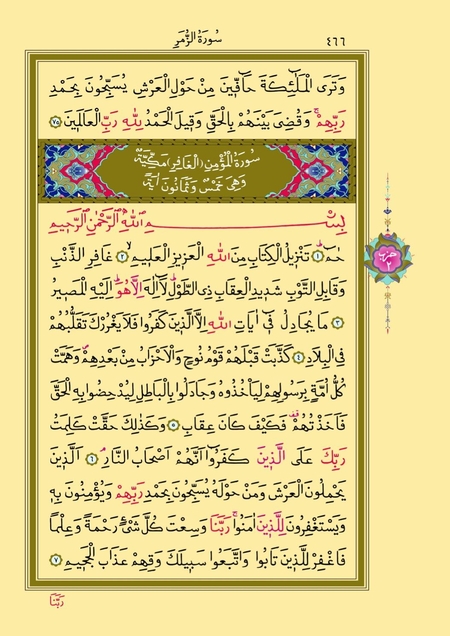 سُورَةُ الزُّمَرِ
٤٦٦
وَتَرَى الْمَلٰٓئِكَةَ حَٓافّ۪ينَ مِنْ حَوْلِ الْعَرْشِ يُسَبِّحُونَ بِحَمْدِ
رَبِّهِمْۚ وَقُضِيَ بَيْنَهُمْ بِالْحَقِّ وَق۪يلَ الْحَمْدُ لِلّٰهِ رَبِّ الْعَالَم۪ينَ ﴿٧٥﴾
سُورَةُ الْمُؤْمِنِ (الْغَافِرِ) مَكِّيَّةٌ
وَهِيَ خَمْسٌ وَثَمَانُونَ اٰيَةً
بِسْمِ اللّٰهِ الرَّحْمٰنِ الرَّح۪يمِ
حٰمٓ ﴿١﴾ تَنْز۪يلُ الْكِتَابِ مِنَ اللّٰهِ الْعَز۪يزِ الْعَل۪يمِۙ ﴿٢﴾ غَافِرِ الذَّنْبِ
وَقَابِلِ التَّوْبِ شَد۪يدِ الْعِقَابِ ذِي الطَّوْلِۜ لَٓا اِلٰهَ اِلَّا هُوَۜ اِلَيْهِ الْمَص۪يرُ
﴿٣﴾ مَا يُجَادِلُ ف۪ٓي اٰيَاتِ اللّٰهِ اِلَّا الَّذ۪ينَ كَفَرُوا فَلَا يَغْرُرْكَ تَقَلُّبُهُمْ
فِي الْبِلَادِ ﴿٤﴾ كَذَّبَتْ قَبْلَهُمْ قَوْمُ نُوحٍ وَالْاَحْزَابُ مِنْ بَعْدِهِمْۖ وَهَمَّتْ
كُلُّ اُمَّةٍ بِرَسُولِهِمْ لِيَأْخُذُوهُ وَجَادَلُوا بِالْبَاطِلِ لِيُدْحِضُوا بِهِ الْحَقَّ
فَاَخَذْتُهُمْ۠ فَكَيْفَ كَانَ عِقَابِ ﴿٥﴾ وَكَذٰلِكَ حَقَّتْ كَلِمَتُ
رَبِّكَ عَلَى الَّذ۪ينَ كَفَرُٓوا اَنَّهُمْ اَصْحَابُ النَّارِۢ ﴿٦﴾ اَلَّذ۪ينَ
يَحْمِلُونَ الْعَرْشَ وَمَنْ حَوْلَهُ يُسَبِّحُونَ بِحَمْدِ رَبِّهِمْ وَيُؤْمِنُونَ بِه۪
وَيَسْتَغْفِرُونَ لِلَّذ۪ينَ اٰمَنُواۚ رَبَّنَا وَسِعْتَ كُلَّ شَيْءٍ رَحْمَةً وَعِلْمًا
فَاغْفِرْ لِلَّذ۪ينَ تَابُوا وَاتَّبَعُوا سَب۪يلَكَ وَقِهِمْ عَذَابَ الْجَح۪يمِ ﴿٧﴾
حزب
٢
رَبَّنَا